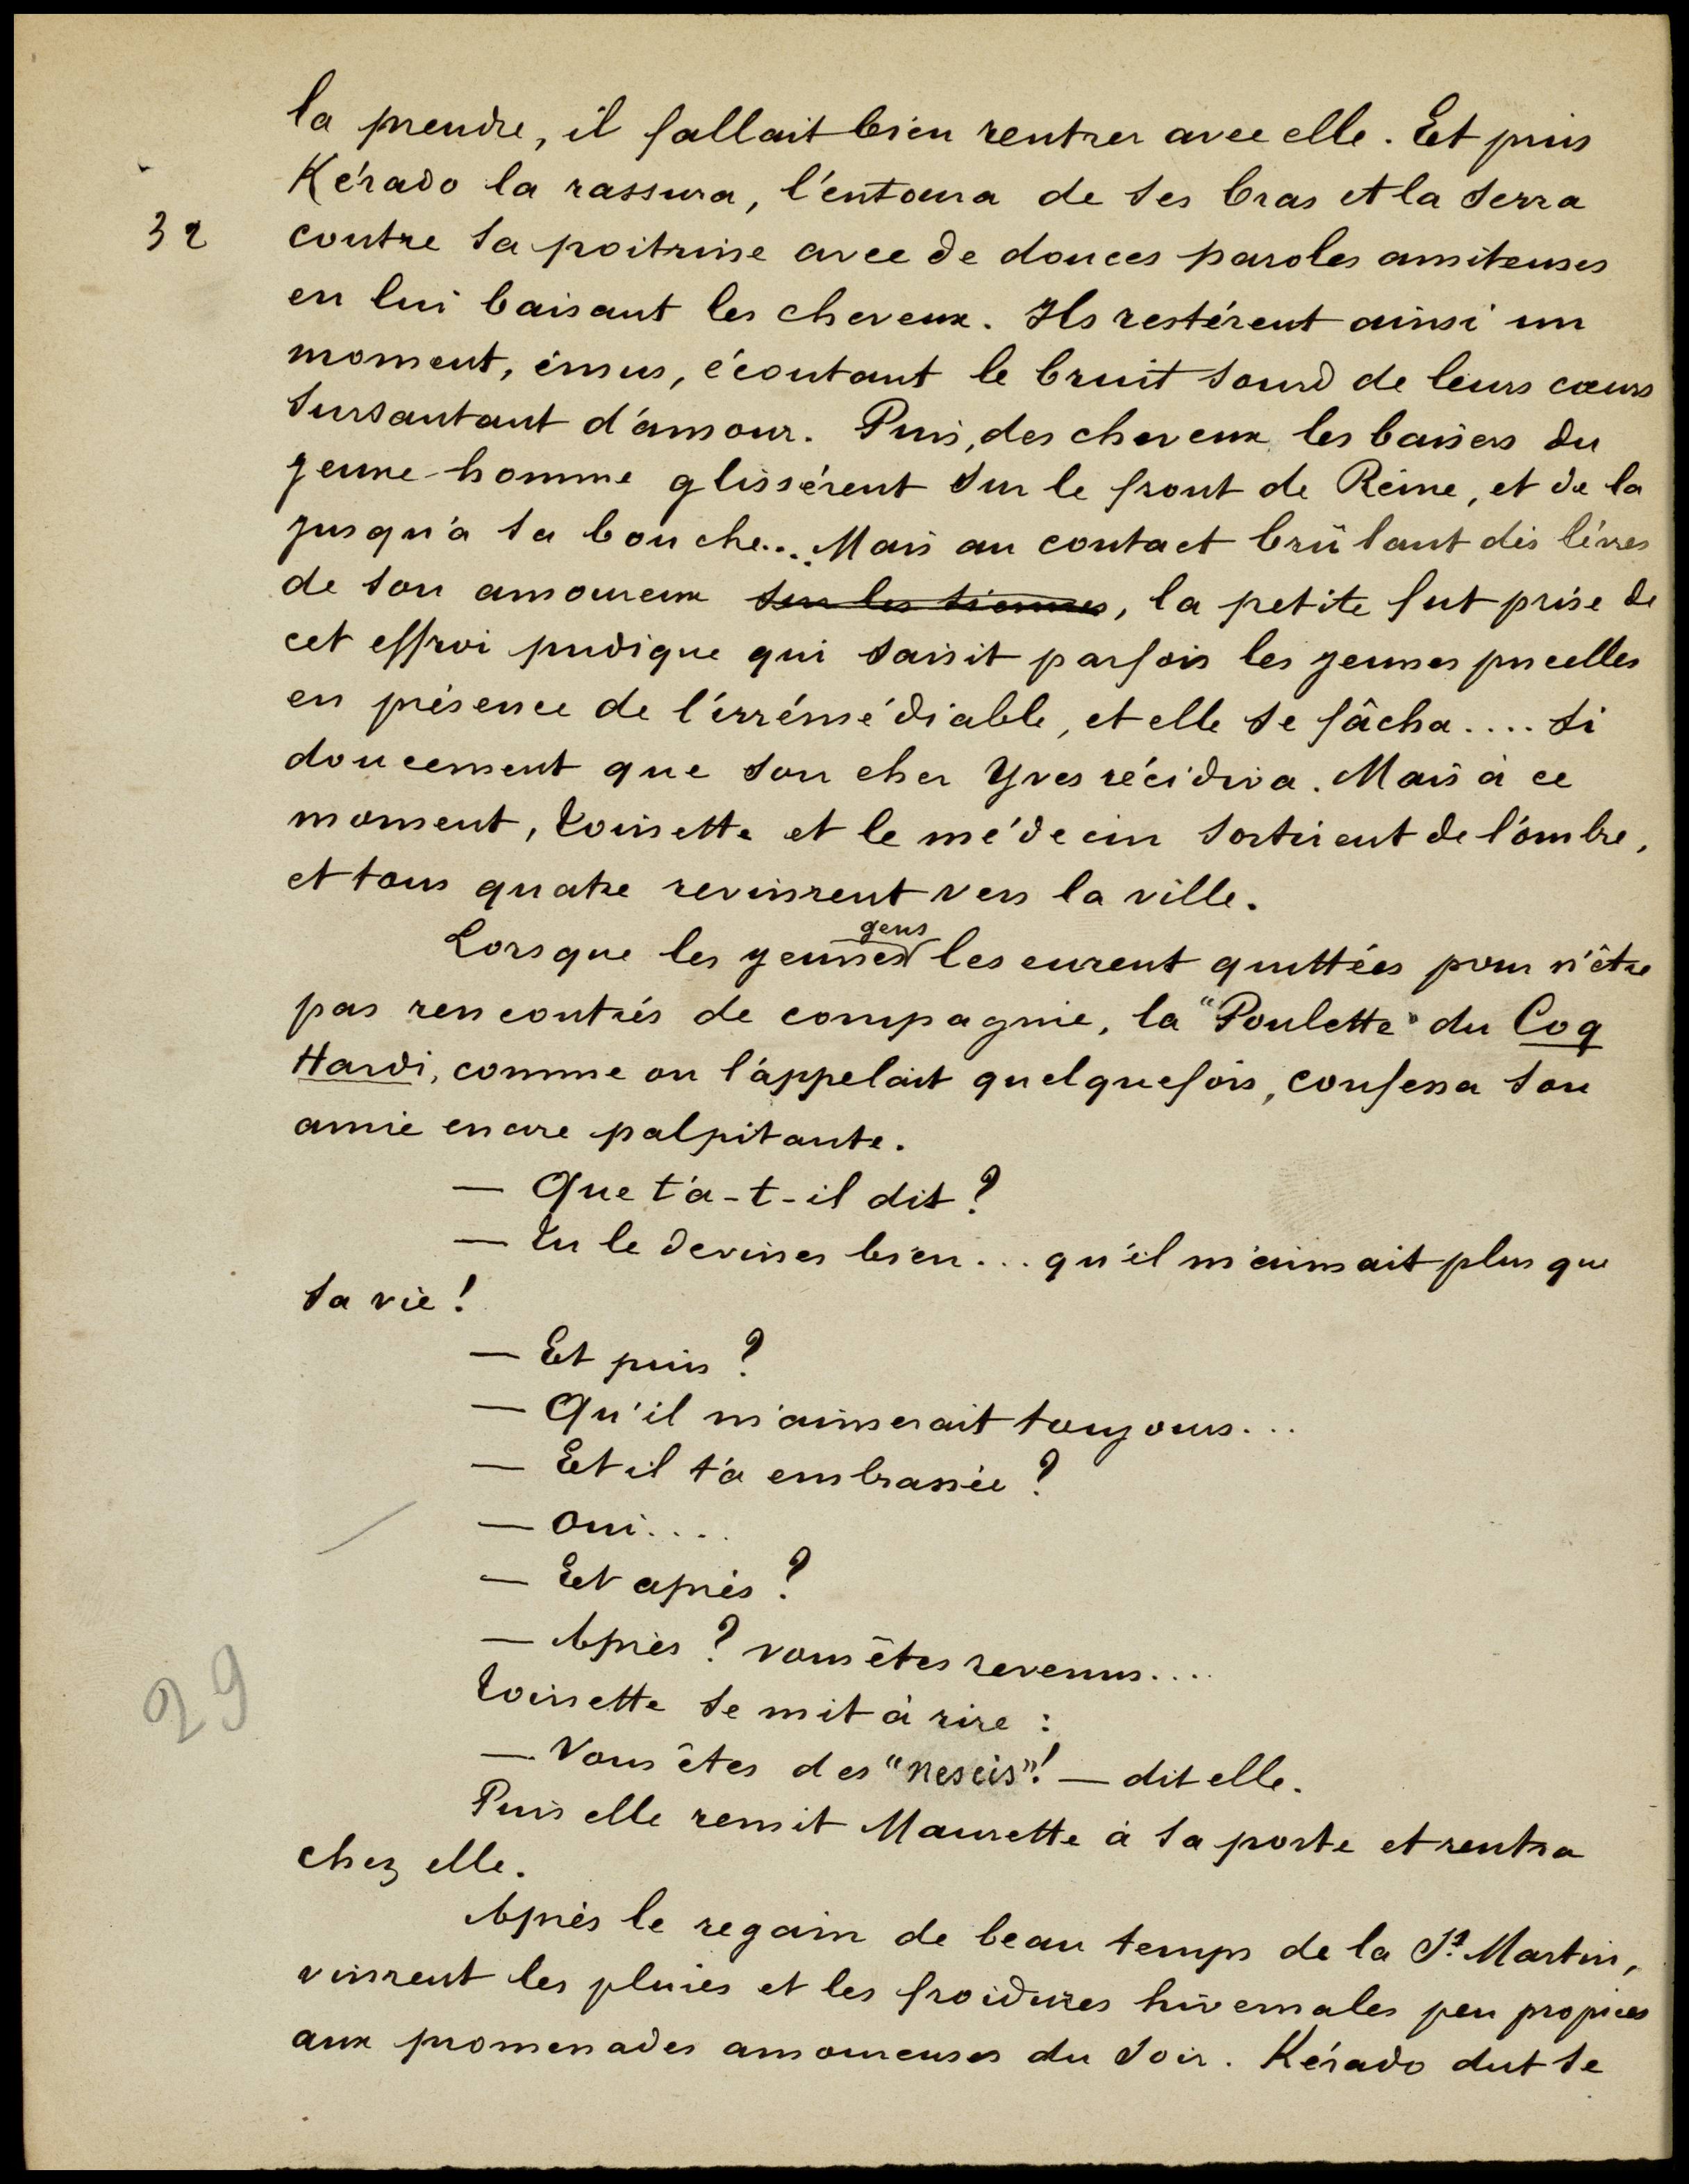 la prendre, il fallait bien rentrer avec elle. Et puis
Kérado la rassura, l'entoura de ses bras et la serra
32
contre sa poitrine avec de douces paroles amiteuses
en lui baisant les cheveux. Ils restèrent ainsi un
moment, émus, écoutant le bruit sourd de leurs cœurs
sursautant d'amour. Puis, des cheveux les baisers du
jeune homme glissèrent sur le front de Reine, et de la
jusqu'à sa bouche... Mais au contact brûlant des lèvres
de son amoureux sur les siennes, la petite fut prise de
cet effroi pudique qui saisit parfois les jeunes pucelles
en présence de l'irrémédiable, et elle se fâcha.... si
doucement que son cher Yves récidiva. Mais à ce
moment, Toinette et le médecin sortirent de l'ombre,
et tous quatre revinrent vers la ville.
gens
Lorsque les jeunes les eurent quittées pour n'être
pas rencontrés de compagnie, la "Poulette" du Coq
Hardi, comme on l'appelait quelquefois, confessa son
amie encore palpitante.
— Que t'a-t-il dit ?
— Tu le devines bien... qu'il m'aimait plus que
sa vie !
— Et puis ?
— Qu'il m'aimerait toujours...
— Et il t'a embrassée ?
— Oui....
— Et après ?
— Après ? vous êtes revenus....
29
Toinette se mit à rire :
— Vous êtes des "nescis"! — dit elle.
Puis elle remit Maurette à sa porte et rentra
chez elle.
Après le regain de beau temps de la St Martin,
vinrent les pluies et les froidures hivernales peu propices
aux promenades amoureuses du soir. Kérado dut se